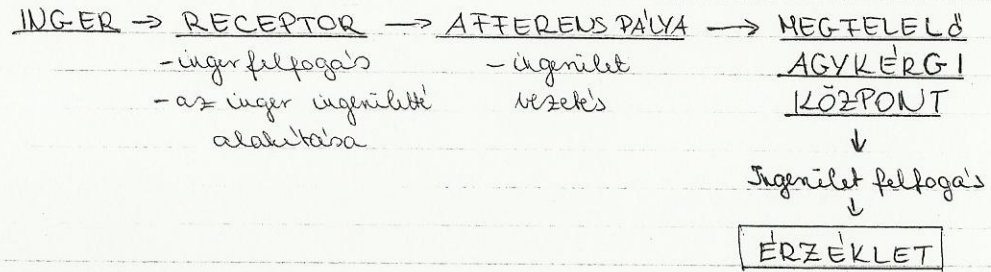 INGER → RECEPTOR → AFFERENS PÁLYA → MEGFELELŐ
AGYKÉRGI
KÖZPONT
- inger felfogás
- az inger ingerületté
alakítása
- ingerület
vezetés
↓
Ingerület felfogás
↓
ÉRZÉKLET